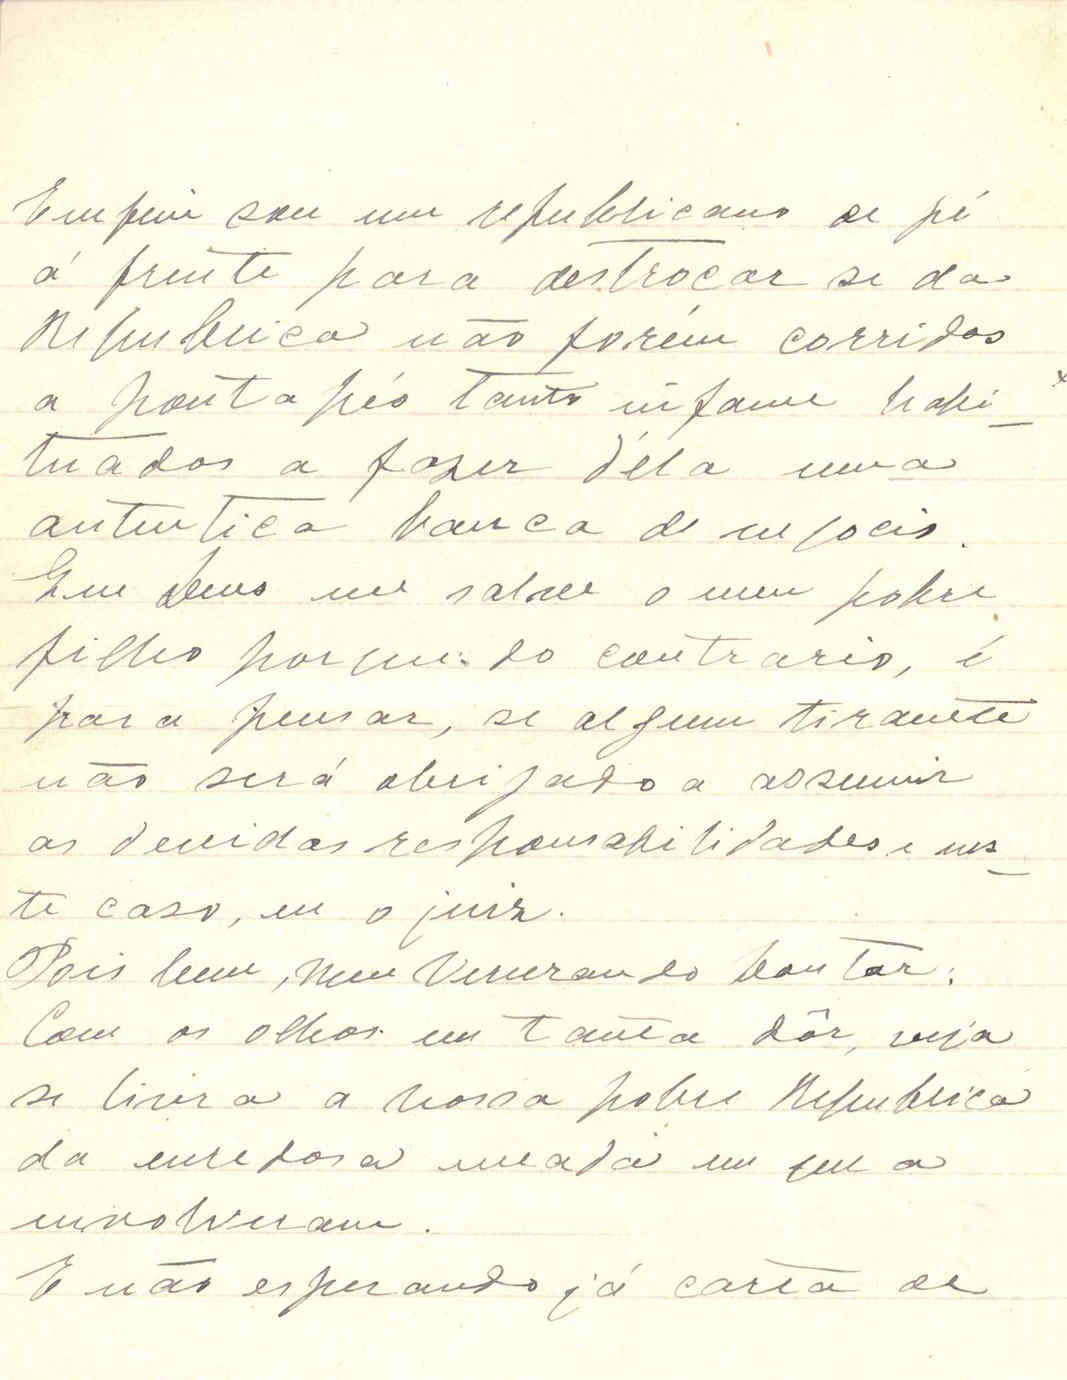 Emfim sou um republicano de pé
á frente para destroçar se da
Republica não forém corridos
a pontapés tanto infame habi-
tuados a fazer d'éla uma
autentica banca de negocio.
Que Deus me salve o meu pobre
filho porque do contrario, é
para pensar, se algum tiranete
não será obrigado a assumir
as devidas responsabilidades e nes-
te caso, eu o juiz.
Pois bem, meu Venerando Doutor:
Com os olhos em tanta dôr, veja
se livra a nossa pobre Republica
da enredosa meada em que a
involveram.
E não esperando já carta de